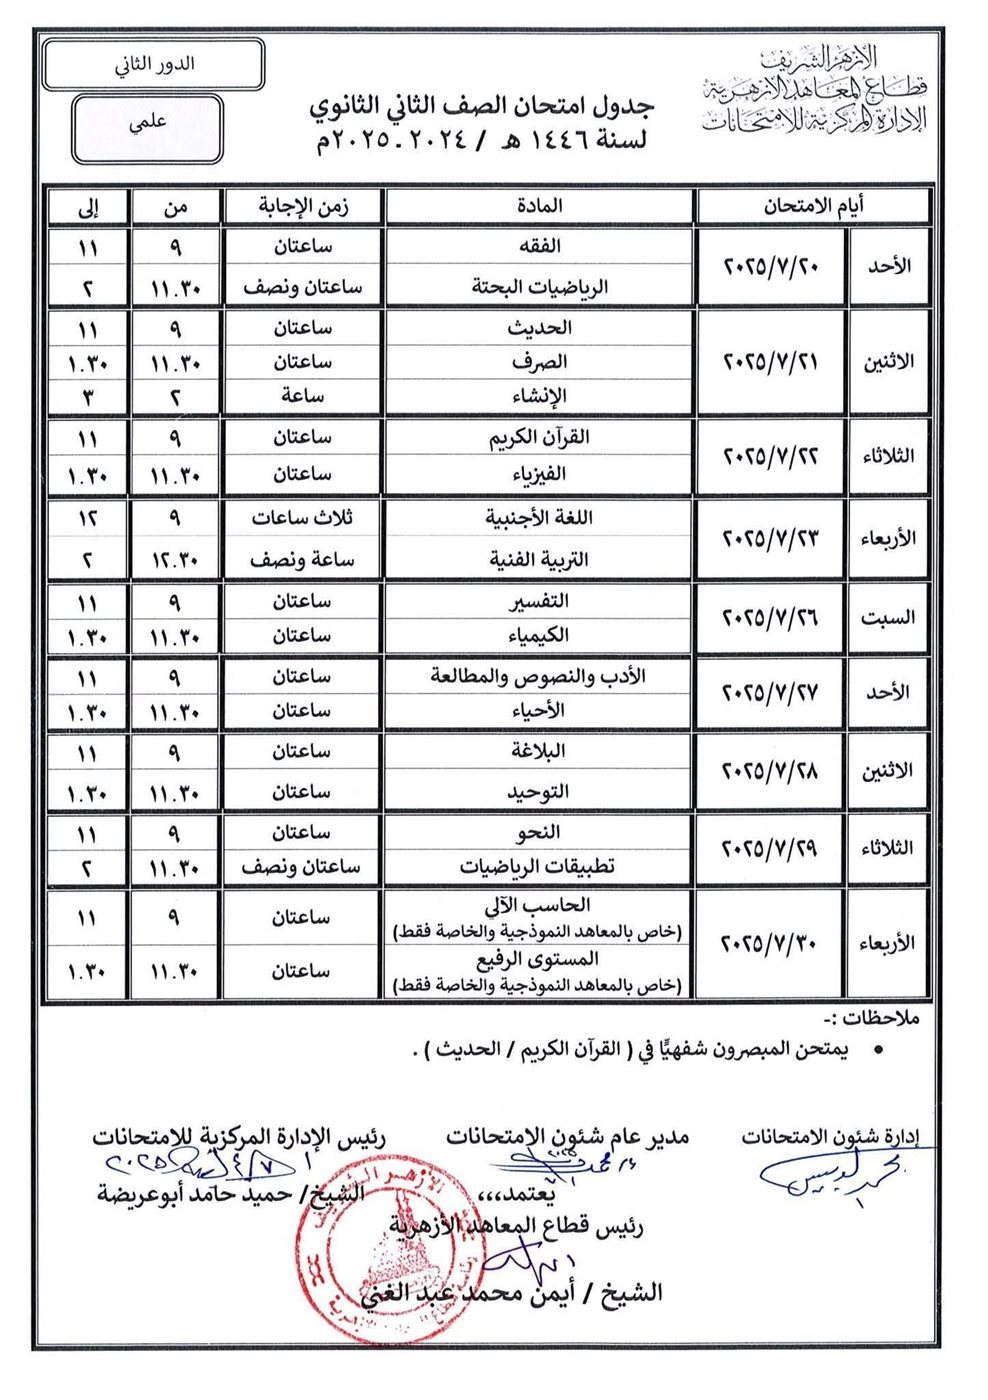 الأزهر الشريف
قطاع المعاهد الأزهرية
الإدارة المركزية للامتحانات
جدول امتحان الصف الثاني الثانوي
لسنة ١٤٤٦ هـ / ٢٠٢٤ ـ ٢٠٢٥م
الدور الثاني
علمي
أيام الامتحان المادة زمن الإجابة من إلى
الأحد ٢٠٢٥/٧/٢٠ الفقه ساعتان ٩ ١١
الرياضيات البحتة ساعتان ونصف ١١.٣٠ ٢
الاثنين ٢٠٢٥/٧/٢١ الحديث ساعتان ٩ ١١
الصرف ساعتان ١١.٣٠ ١.٣٠
الإنشاء ساعة ٢ ٣
الثلاثاء ٢٠٢٥/٧/٢٢ القرآن الكريم ساعتان ٩ ١١
الفيزياء ساعتان ١١.٣٠ ١.٣٠
الأربعاء ٢٠٢٥/٧/٢٣ اللغة الأجنبية ثلاث ساعات ٩ ١٢
التربية الفنية ساعة ونصف ١٢.٣٠ ٢
السبت ٢٠٢٥/٧/٢٦ التفسير ساعتان ٩ ١١
الكيمياء ساعتان ١١.٣٠ ١.٣٠
الأحد ٢٠٢٥/٧/٢٧ الأدب والنصوص والمطالعة ساعتان ٩ ١١
الأحياء ساعتان ١١.٣٠ ١.٣٠
الاثنين ٢٠٢٥/٧/٢٨ البلاغة ساعتان ٩ ١١
التوحيد ساعتان ١١.٣٠ ١.٣٠
الثلاثاء ٢٠٢٥/٧/٢٩ النحو ساعتان ٩ ١١
تطبيقات الرياضيات ساعتان ونصف ١١.٣٠ ٢
الأربعاء ٢٠٢٥/٧/٣٠ الحاسب الآلي ساعتان ٩ ١١
(خاص بالمعاهد النموذجية والخاصة فقط)
المستوى الرفيع ساعتان ١١.٣٠ ١.٣٠
(خاص بالمعاهد النموذجية والخاصة فقط)
ملاحظات :-
• يمتحن المبصرون شفهيًّا في ( القرآن الكريم / الحديث ) .
إدارة شئون الامتحانات مدير عام شئون الامتحانات رئيس الإدارة المركزية للامتحانات
الشيخ/ حميد حامد أبوعريضة
يعتمد،،،
رئيس قطاع المعاهد الأزهرية
الشيخ / أيمن محمد عبد الغني